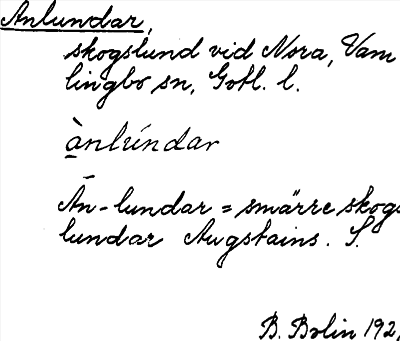 Anlundar,
skogslund vid Nora, Vam
lingbo sn, Gotl. l.
ànlúndar
Ān-lundar = smärre skogs
lundar Augstains. S.
B. Bolin 192